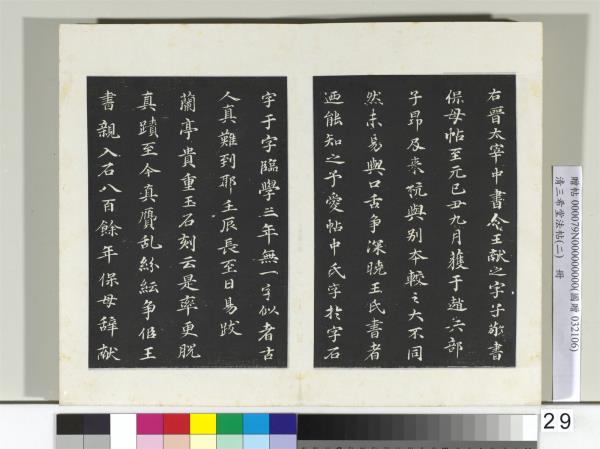 右晉太宰中書令王獻之字子敬書
保母帖至元己丑九月獲于趙兵部
子昂及來阮與別本較之大不同
然未易與口舌争深曉王氏書者
迺能知之予愛帖中氏字於字石
字于字臨學三年無一字似者古
人真難到耶壬辰長至日易跋
蘭亭貴重玉石刻云是率更脱
真蹟至今真贗乱紛紜争佀王
書親入石八百餘年保母辭献
贈帖 000079N000000000(國贈 032106)
清三希堂法帖(二) 冊
29